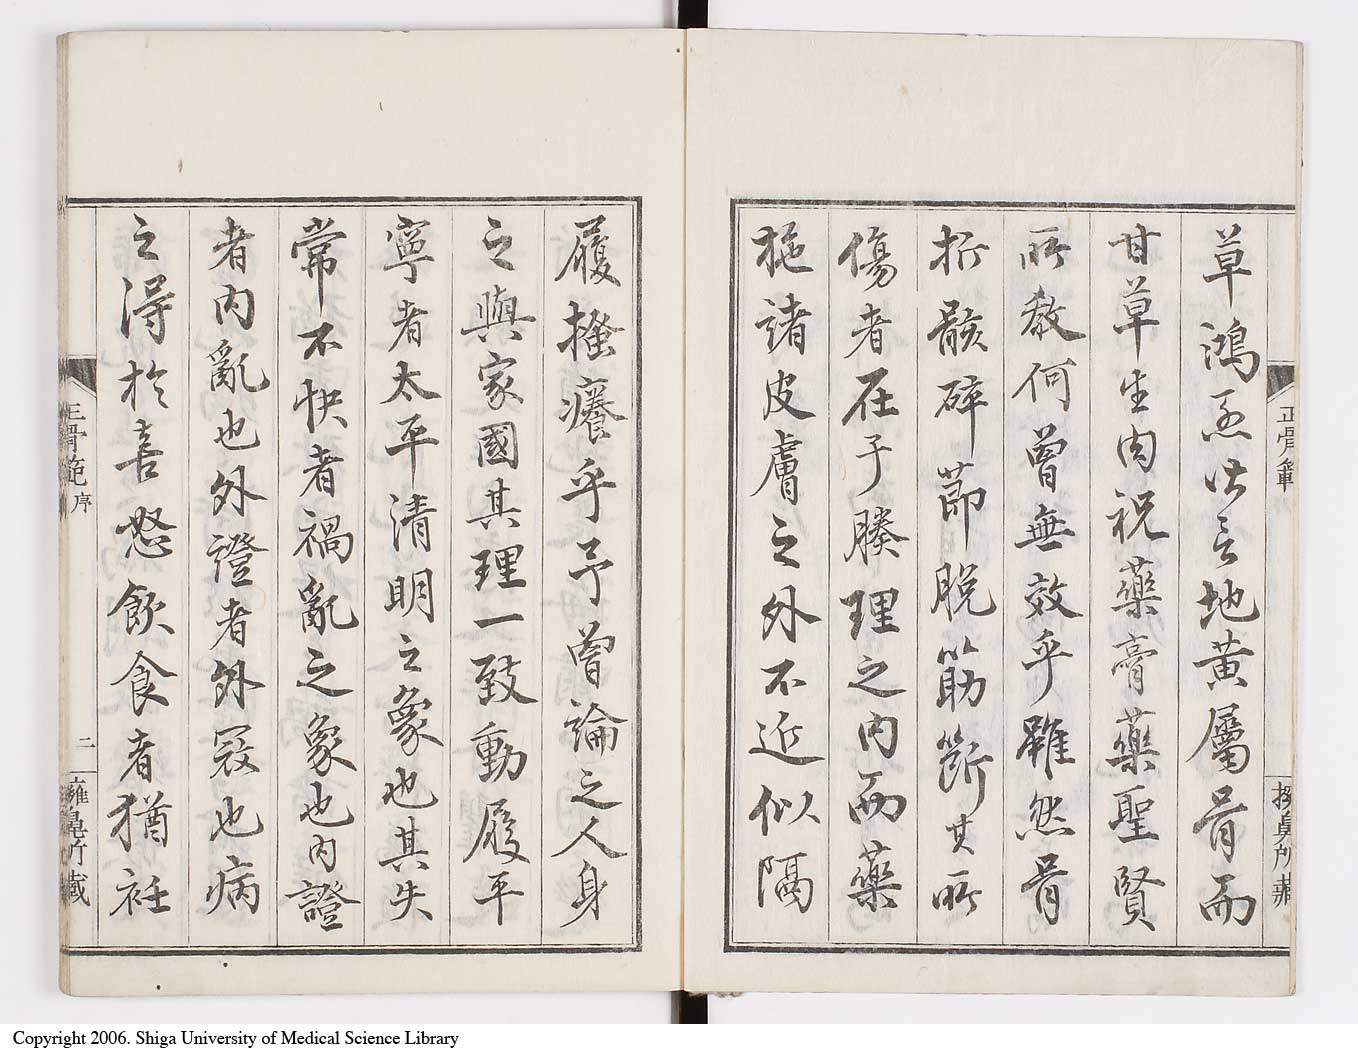 草鴻烈以言地黃屬骨而
甘草生肉祝藥膏藥聖賢
所教何曾無效乎雖然骨
折骸碎節脫筋斷其所
傷者在于腠理之內而藥
施諸皮膚之外不近似隔
履搔癢乎予曾論之人身
之與家國其理一致動履平
寧者太平清明之象也其失
常不快者禍亂之象也內證
者內亂也外證者外冦也病
之得於喜怒飲食者猶衽
正骨範
正骨範 序
二
Copyright 2006. Shiga University of Medical Science Library